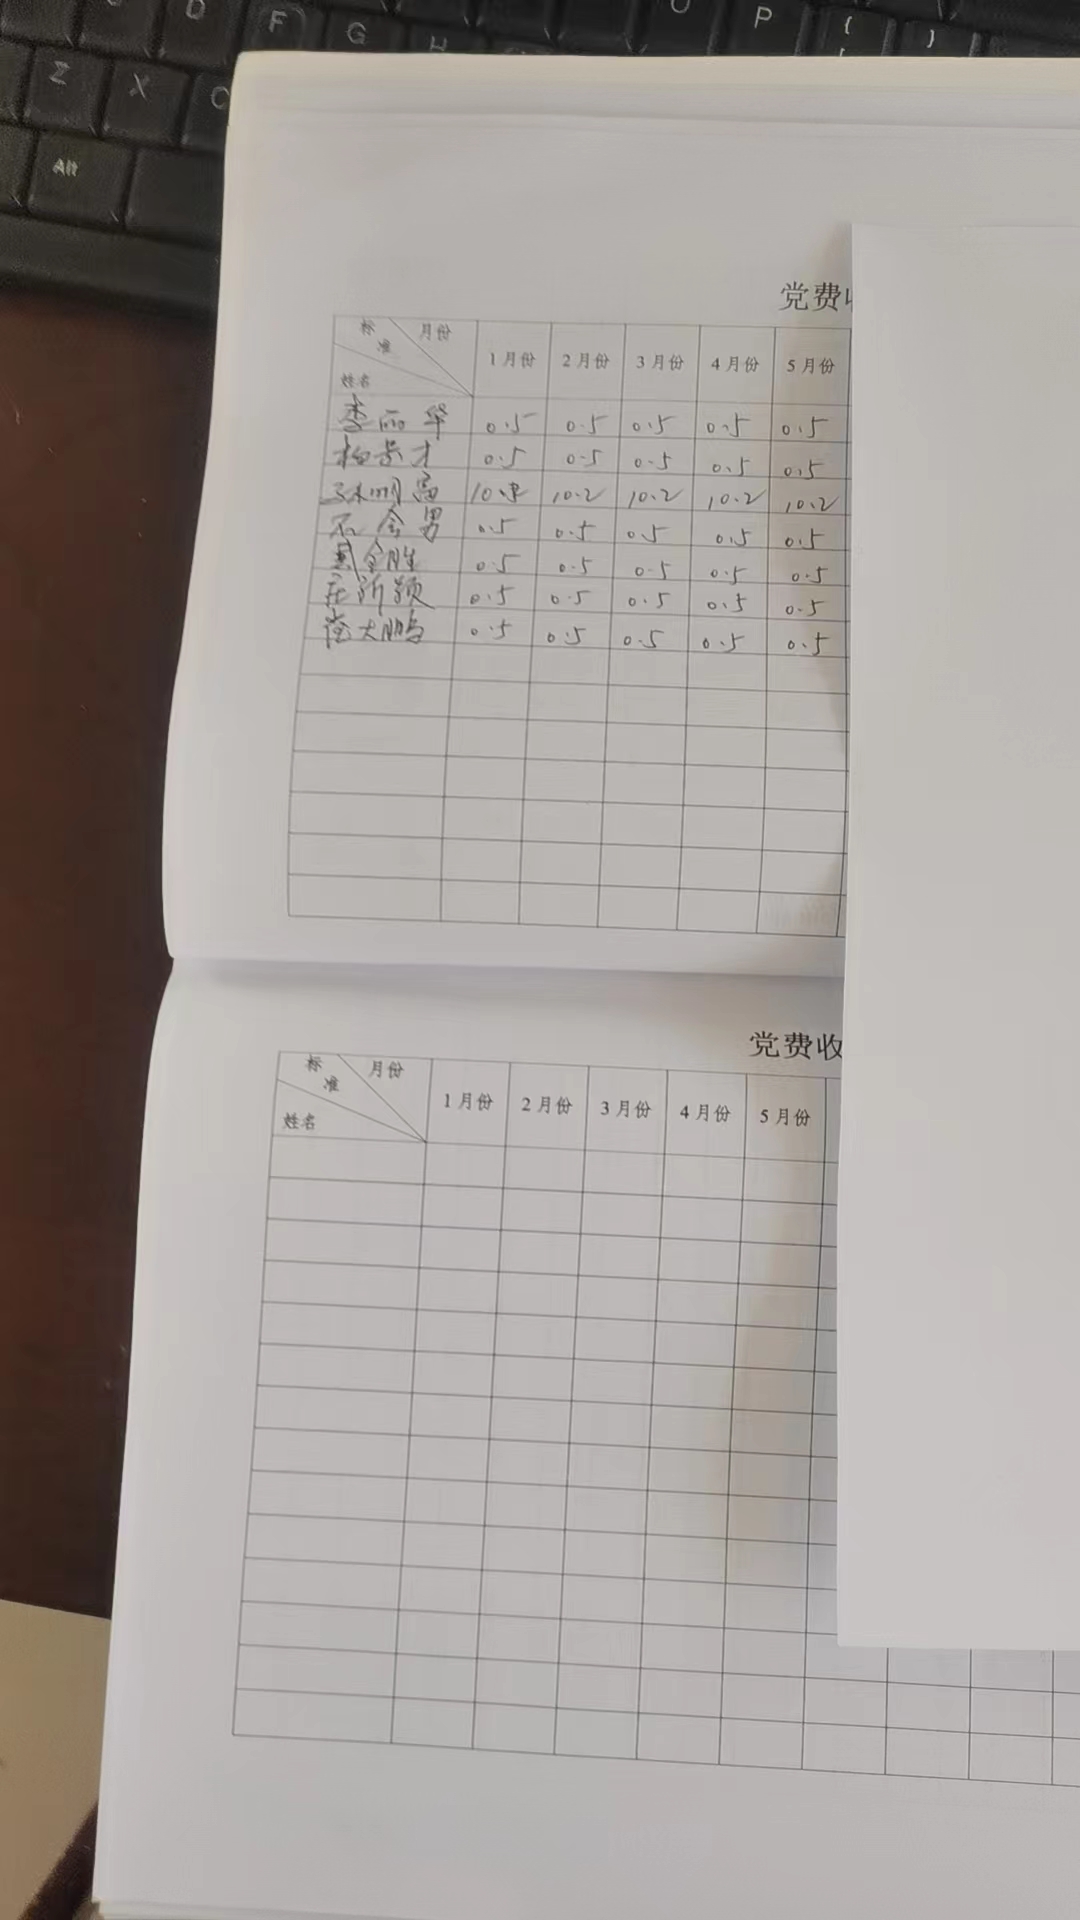 D F G H P { }
Z X C [
Alt
党费收
标准 月份 姓名 1月份 2月份 3月份 4月份 5月份
李丽华 0.5 0.5 0.5 0.5 0.5
柏景才 0.5 0.5 0.5 0.5 0.5
明富 10.2 10.2 10.2 10.2
金男 0.5 0.5 0.5 0.5 0.5
金胜 0.5 0.5 0.5 0.5 0.5
0.5 0.5 0.5 0.5 0.5
大鹏 0.5 0.5 0.5 0.5 0.5
党费收
标准 月份 姓名 1月份 2月份 3月份 4月份 5月份